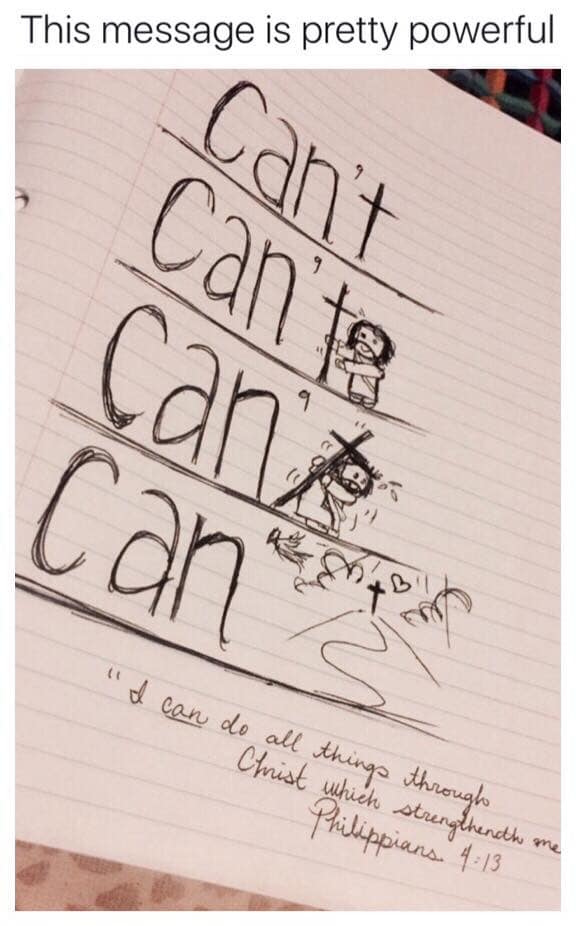 This message is pretty powerful
Can't
Can't
Can'
Can
"I can do all things through
Christ which strengthendth me
Philippians 4:13